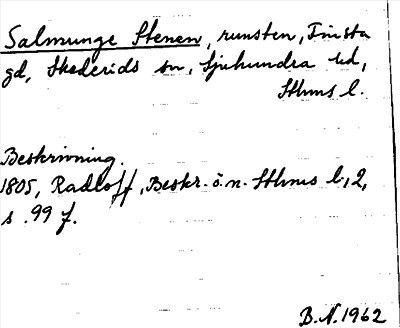 Salmunge Stenen, runsten, Finsta
gd, Skederids sn, Sjuhundra hd,
Sthms l.
Beskrivning.
1805, Radloff, Beskr. ö. n. Sthms l., 2,
s. 99 f.
B.N. 1962